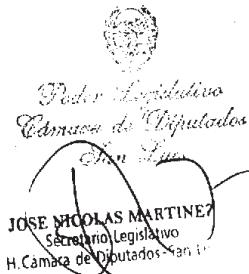 Poder Legislativo
Cámara de Diputados
San Luis
JOSE NICOLAS MARTINEZ
Secretario Legislativo
H. Cámara de Diputados - San L